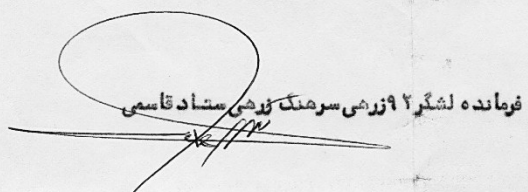 فرمانده لشگر ۹۲ زرهی سرهنگ زرهی ستاد قاسمی